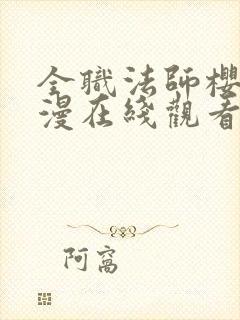 全職法師櫻
漫在綫觀看
阿窩